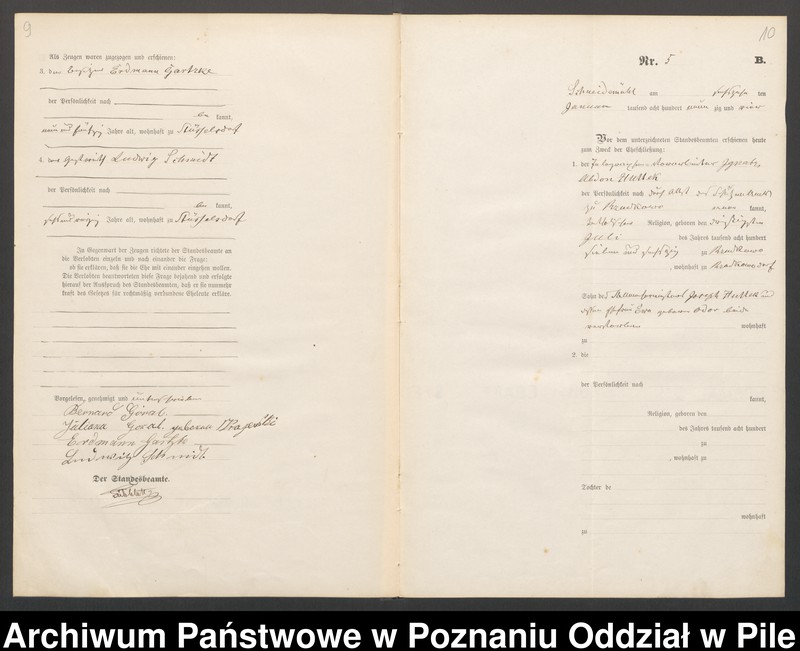 9
Als Zeugen waren zugezogen und erschienen:
3. der Besitzer Erdmann Gartzke
der Persönlichkeit nach
kannt,
neun und fünfzig Jahre alt, wohnhaft zu Stüsselsdorf
4. der Gastwirth Ludwig Schmidt
der Persönlichkeit nach
kannt,
Jahre alt, wohnhaft zu Stüsselsdorf
In Gegenwart der Zeugen richtete der Standesbeamte an
die Verlobten einzeln und nach einander die Frage:
ob sie erklären, daß sie die Ehe mit einander eingehen wollen.
Die Verlobten beantworteten diese Frage bejahend und erfolgte
hierauf der Ausspruch des Standesbeamten, daß er sie nunmehr
kraft des Gesetzes für rechtmäßig verbundene Eheleute erkläre.
Vorgelesen, genehmigt und unterschrieben
Bernard Góral
Juliana Goral geborena
Erdmann Gartzke
Ludwig Schmidt
Der Standesbeamte.
10
Nr. 5
B.
Schneidemühl am sechszehn ten
Januar tausend acht hundert neun zig und vier
Vor dem unterzeichneten Standesbeamten erschienen heute
zum Zweck der Eheschließung:
1. der
Abdon Huttek
der Persönlichkeit nach
zu Bzadkowo kannt,
katholischer Religion, geboren den dreißigsten
Juli des Jahres tausend acht hundert
sieben und sechszig zu Bzadkowo
, wohnhaft zu
Sohn des Joseph Huttek und
dessen Ehefrau Eva geboren Odor beide
verstorben wohnhaft
zu
2. die
der Persönlichkeit nach
kannt,
Religion, geboren den
des Jahres tausend acht hundert
zu
, wohnhaft zu
Tochter de
wohnhaft
zu
Archiwum Państwowe w Poznaniu Oddział w Pile